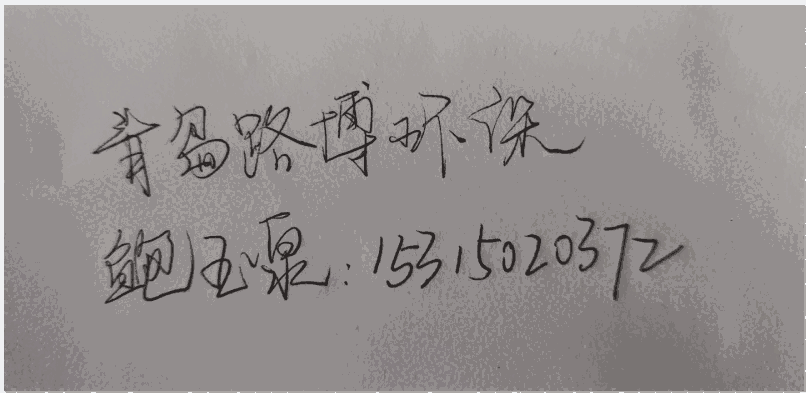 青岛路博环保
鲍玉泉：15315020372